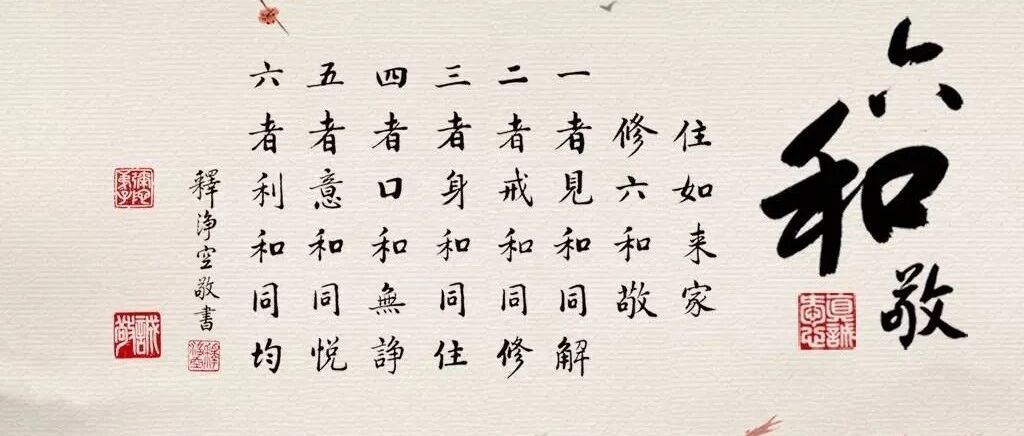 六和敬
真誠
住如来家
修六和敬
一者見和同解
二者戒和同修
三者身和同住
四者口和無諍
五者意和同悦
六者利和同均
釋浄空敬書
誠敬